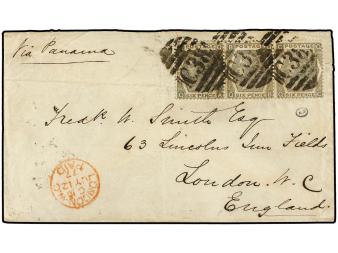 Via Panama
C 38 C 38 C 38
SIX PENCE SIX PENCE SIX PENCE
Fredk. W. Smith Esq
63 Lincolns Inn Fields
London. W. C
England.
LONDON
PAID